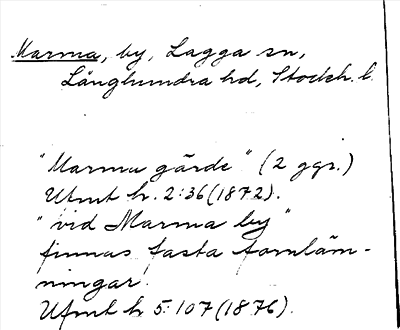 Marma, by, Lagga sn,
Långhundra hd, Stockh. l.
"Marma gärde" (2 ggr.)
Ufmt h. 2:36 (1872).
"vid Marma by"
finnas fasta fornläm-
ningar.
Ufmt h 5:107 (1876).